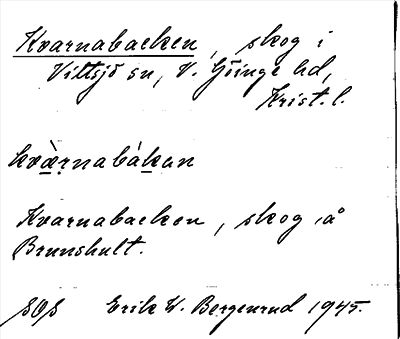 Kvarnabacken, skog i
Vittsjö sn, V. Göinge hd,
Krist. l.
kvæ̀rnabákan
Kvarnabacken, skog å
Brunshult.
SOS Erik W. Bergenrud 1945.